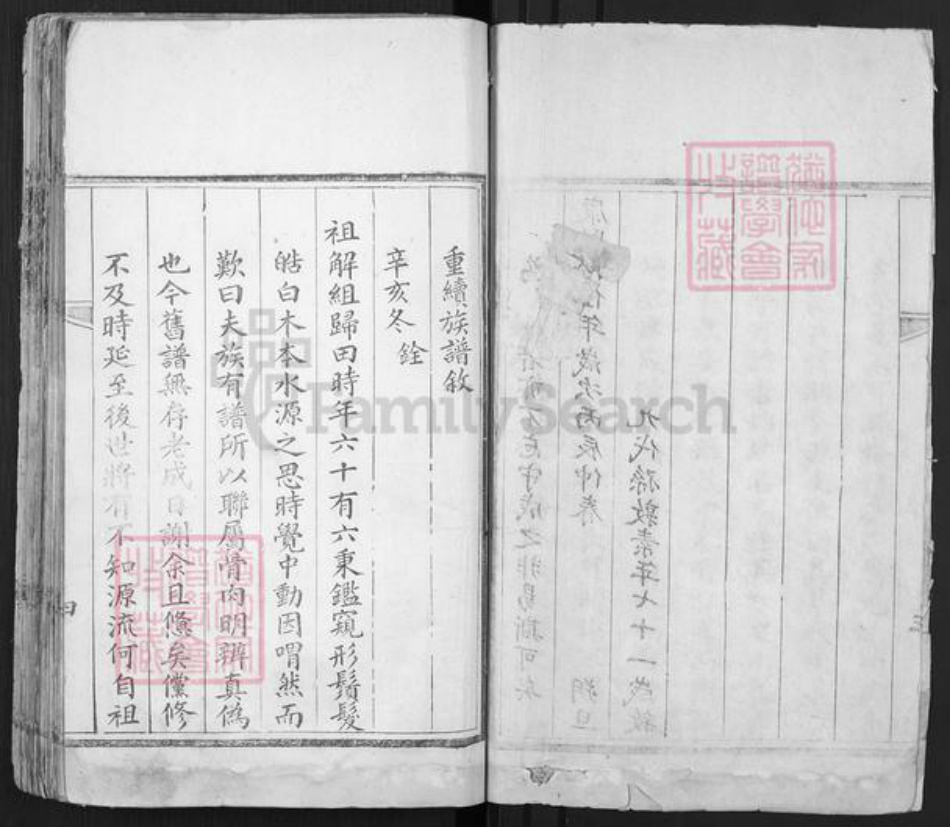 重續族譜敘
辛亥冬銓
祖解組歸田時年六十有六秉鑑窺形鬚髮
皓白木本水源之思時覺中動因喟然而
歎曰夫族有譜所以聯屬骨肉明辨真偽
也今舊譜無存老成日謝余且憊矣儻修
不及時延至後世將有不知源流何自祖
四
FamilySearch
年歲次丙辰仲春 朔旦
九代孫敦素年七十一歲
守成之非易斯可矣
三